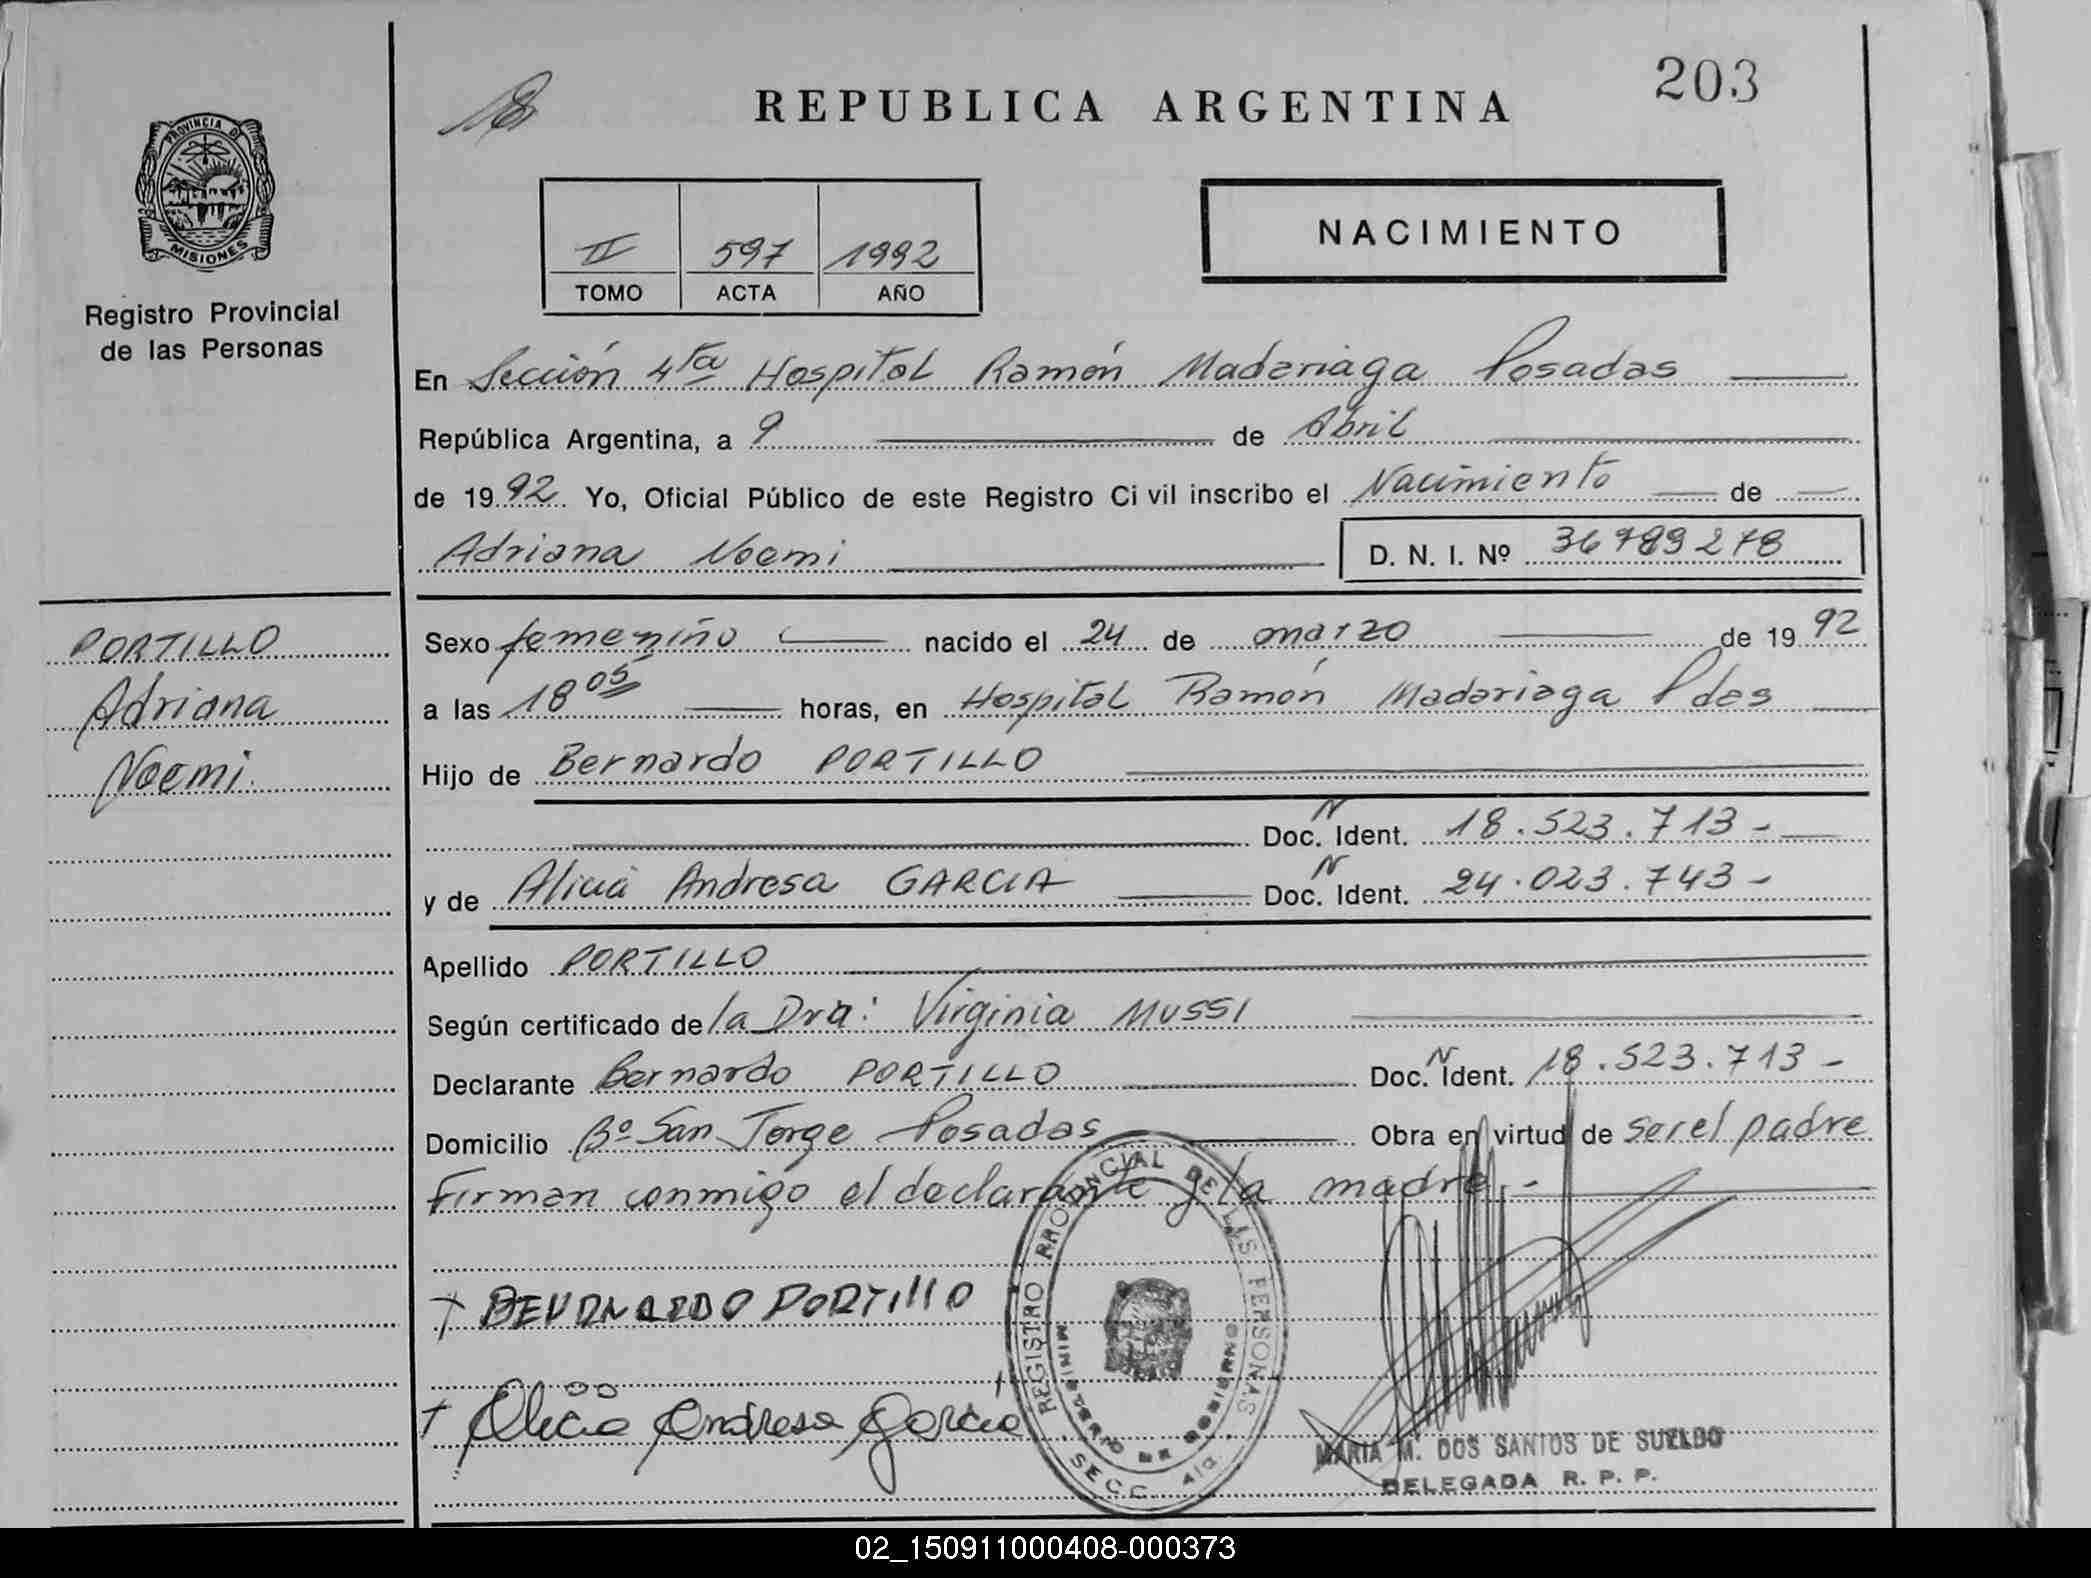 18
REPUBLICA ARGENTINA
203
PROVINCIA DE
MISIONES
Registro Provincial
de las Personas
II 597 1992
TOMO ACTA AÑO
NACIMIENTO
En Sección 4ta Hospital Ramón Madariaga Posadas
República Argentina, a 9 de Abril
de 1992. Yo, Oficial Público de este Registro Ci vil inscribo el Nacimiento de
Adriana Noemi D. N. I. Nº 36789278
PORTILLO
Adriana
Noemi.
Sexo femenino nacido el 24 de marzo de 1992
a las 18 05 horas, en Hospital Ramón Madariaga Pdas
Hijo de Bernardo PORTILLO
N
Doc. Ident. 18.523.713-
y de Alicia Andresa GARCIA N Doc. Ident. 24.023.743-
Apellido PORTILLO
Según certificado de la Dra: Virginia MUSSI
Declarante Bernardo PORTILLO Doc. N Ident. 18.523.713-
Domicilio Bº San Jorge Posadas Obra en virtud de ser el padre
Firman conmigo el declarante y la madre.-
BERNARDO PORTIllO
Alicia Andresa Garcia
REGISTRO PROVINCIAL DE LAS PERSONAS
MINISTERIO DE GOBIERNO
SECC. 4ta.
MARIA M. DOS SANTOS DE SUELDO
DELEGADA R. P. P.
02_150911000408-000373